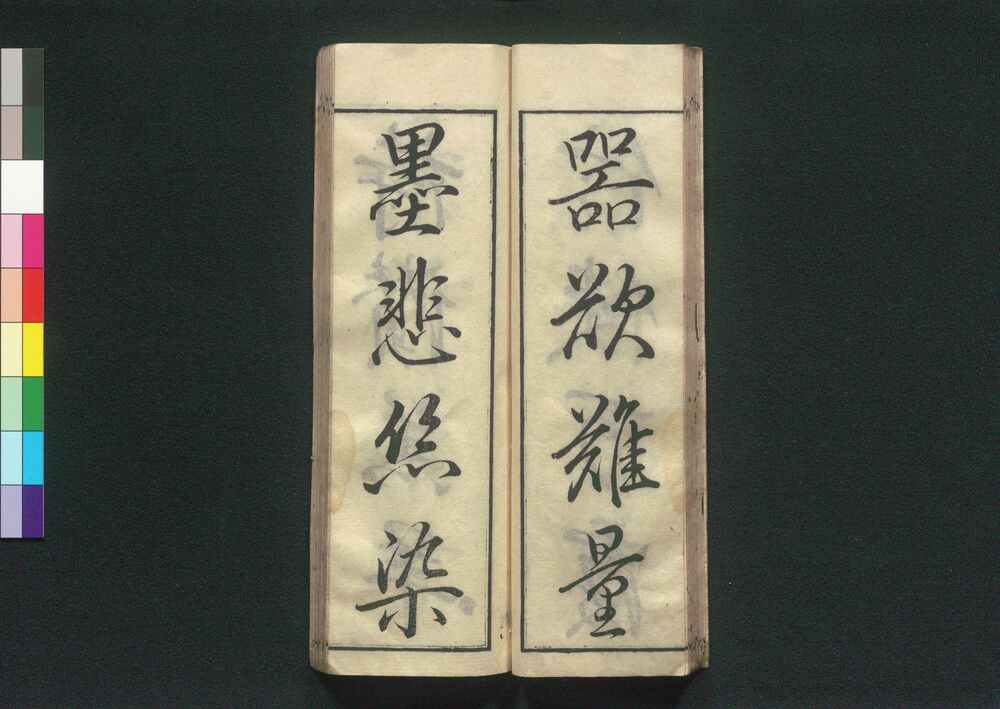 器欲難量
墨悲絲染